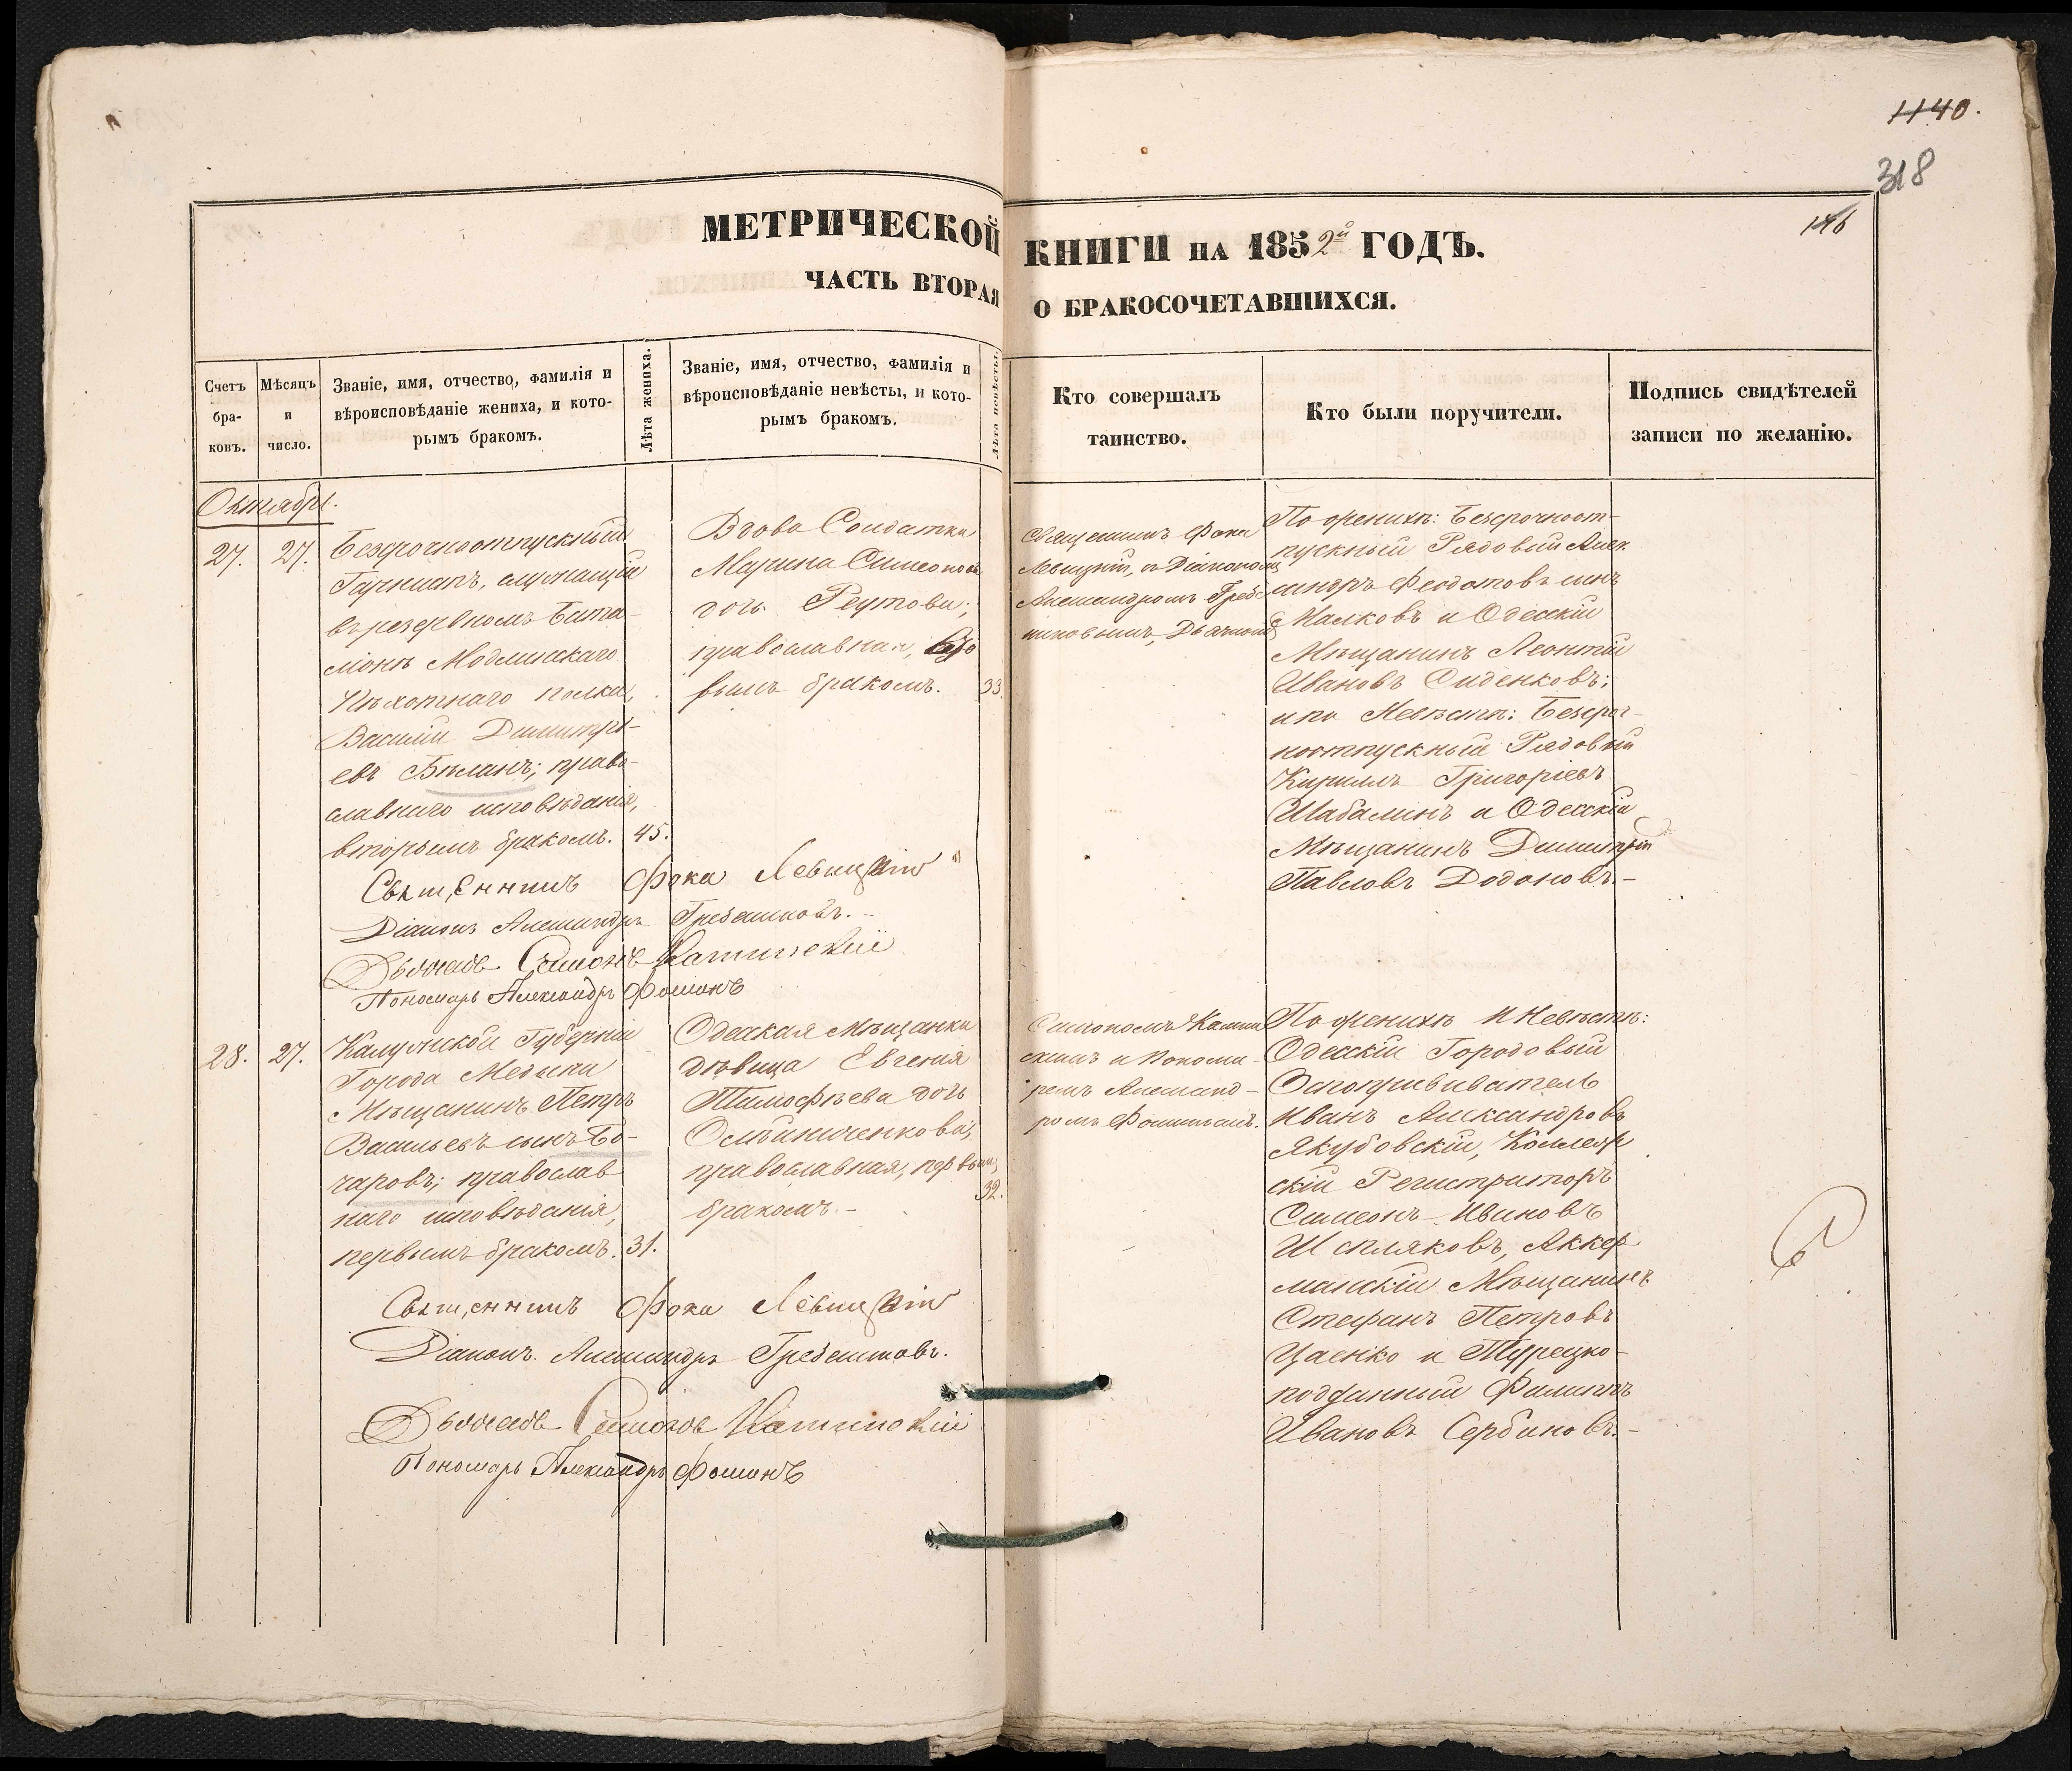 1140.
318
146
МЕТРИЧЕСКОЙ КНИГИ НА 1852й ГОДЪ.
ЧАСТЬ ВТОРАЯ О БРАКОСОЧЕТАВШИХСЯ.
Счетъ
бра-
ковъ.
Мѣсяцъ
и
число.
Званіе, имя, отчество, фамилія и
вѣроисповѣданіе жениха, и кото-
рымъ бракомъ.
Лѣта жениха.
Званіе, имя, отчество, фамилія и
вѣроисповѣданіе невѣсты, и кото-
рымъ бракомъ.
Лѣта невѣсты.
Кто совершалъ
таинство.
Кто были поручители.
Подпись свидѣтелей
записи по желанію.
Октябрь.
27.
27.
Безсрочноотпускный
служащій
въ резервномъ Бата-
ліонѣ Модлинскаго
Пѣхотнаго полка,
Василій Димитрі-
евъ Бѣланъ; право-
славнаго исповѣданія,
вторымъ бракомъ.
45.
Вдова Солдатка
Марина Симеонова
дочь Реутова;
православная,
вымъ бракомъ.
33.
Священникъ Фока
Левицкій, съ Діакономъ
Александромъ Гребе-
шковымъ, Дьячкомъ
По женихѣ: Безсрочноот-
пускный Рядовый Алек-
сандръ Феодотовъ сынъ
Малковъ и Одесскій
Мѣщанинъ Леонтій
Ивановъ Сиденковъ;
и по Невѣстѣ: Безсроч-
ноотпускный Рядовый
Кириллъ Григоріевъ
Шабалинъ и Одесскій
Мѣщанинъ Димитрій
Павловъ Додоновъ.-
Священникъ Фока Левицкій
Діаконъ Александръ Гребешковъ.-
Дьячекъ Симонъ Каминскій
Пономарь Александръ Фоминъ
28.
27.
Калужской Губерніи
Города Медыни
Мѣщанинъ Петръ
Васильевъ сынъ Бо-
чаровъ; православ
наго исповѣданія,
первымъ бракомъ.
31.
Одесская Мѣщанка
дѣвица Евгенія
Тимофѣева дочь
православная, первымъ
бракомъ.-
32.
Симономъ Камин
скимъ и Понома-
ремъ Александ-
ромъ Фоминымъ.
По женихѣ и Невѣстѣ:
Одесскій Городовый
Оспопрививатель
Иванъ Александровъ
Якубовскій, Коллеж
скій Регистраторъ
Симеонъ Ивановъ
Шкляковъ, Аккер
манскій Мѣщанинъ
Стефанъ Петровъ
Цаенко и Турецко-
подданный Филиппъ
Ивановъ Сербиновъ.-
Священникъ Фока Левицкій
Діаконъ Александръ Гребешковъ.
Дьячекъ Симонъ Каминскій
Пономарь Александръ Фоминъ